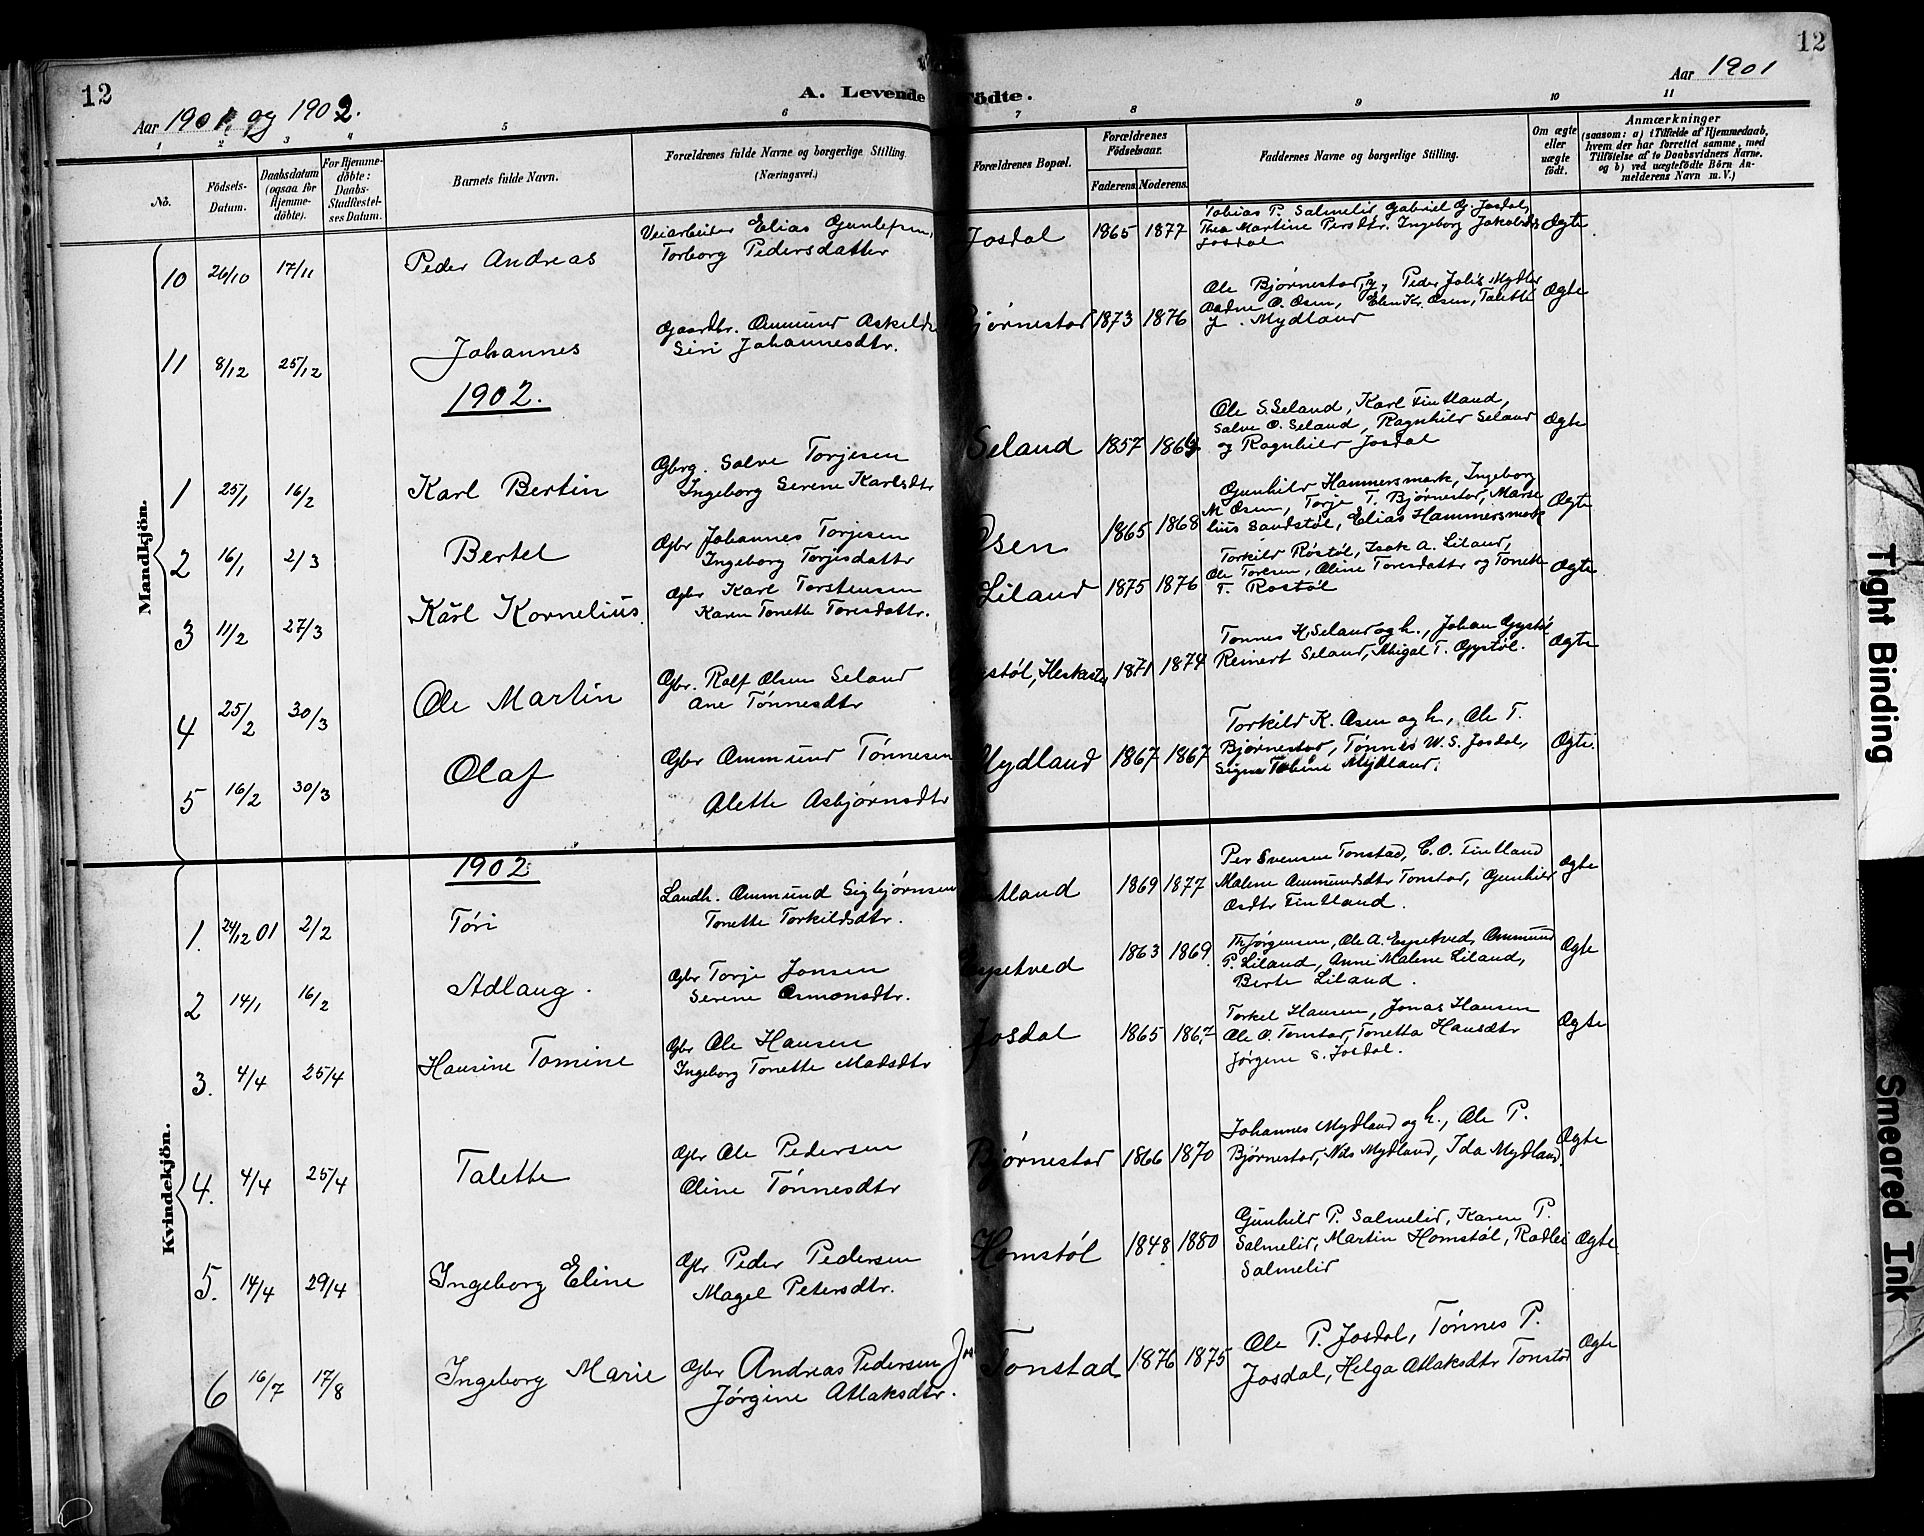 12
12
Aar 1901 og 1902.
A. Levende Födte.
Aar 1901
1 2 3 4 5 6 7 8 9 10 11
No.
Födsels-
Datum.
Daabsdatum
(ogsaa for
Hjemme-
döbte).
For Hjemme-
döbte:
Daabs-
Stadfæstel-
ses Datum.
Barnets fulde Navn.
Forældrenes fulde Navne og borgerlige Stilling.
(Næringsvei.)
Forældrenes Bopæl.
Forældrenes
Födselsaar.
Faderens. Moderens.
Faddernes Navne og borgerlige Stilling.
Om ægte
eller
uægte
födt.
Anmærkninger
(saasom: a) i Tilfælde af Hjemmedaab,
hvem der har forrettet samme, med
Tilföielse af to Daabsvidners Navne.
og b) ved uægtefödte Börn An-
melderens Navn m. V.)
Mandkjön.
10 26/10 17/11 Peder Andreas
Veiarbeider Elias Gunlefsen,
Torborg Pedersdatter
Josdal 1865 1877
Tobias P. Salmelid Gabriel G. Josdal,
Thea Martine Persdtr. Ingeborg Jakobsdtr
Josdal
Ægte
11 8/12 25/12 Johannes
Gaardbr. Ommund Askilds
Siri Johannesdtr.
Bjørnestad 1873 1876
Ole Bjørnestad, Peder Johs Mydland
Aadne O. Osen, Elen Kr. Osen, Talette
Mydland
Ægte
1902.
1 25/1 16/2 Karl Bertin
Gbrg. Salve Torjesen
Ingeborg Serene Karlsdtr
Seland 1857
Ole S. Seland, Karl Fintland,
Salve O. Seland, Ragnhild Seland
og Ragnhild Josdal
Ægte
2 16/1 2/3 Bertel
Gbr Johannes Torjesen
Ingeborg Torjesdattr
Osen 1865 1868
Gunhild Hammersmark, Ingeborg
M Osen, Torje T. Bjørnestad, Marse
lius Sandstøl, Elias Hammersmark
Ægte
3 11/2 27/3 Karl Kornelius
Gbr Karl Torstensen
Karen Tonette Toresdattr.
Liland 1875 1876
Torkild Røstøl, Isak A. Liland,
Ole Toresen, Oline Toresdattr og Tonette
T. Rostøl
Ægte
4 25/2 30/3 Ole Martin
Gbr. Rolf Olsen Seland
Ane Tønnesdtr
1871 1874
Tønnes H. Seland og h., Johan Gystøl
Reinert Seland, Abigal T. Gystøl.
Ægte
5 16/2 30/3 Olaf
Gbr Ommund Tönnesen
Alette Asbjørnsdtr
Mydland 1867 1867
Torkild K. Osen og h., Ole T.
Bjørnestad, Tønnes W. S. Josdal,
Signe Tobine Mydland.
Ægte.
Kvindekjön.
1902.
1. 24/12 01 2/2 Tøri
Landh. Ommund Sigbjørnsen
Tonette Torkildsdtr.
Fintland 1869 1877
Per Svensen Tonstad, C. O. Fintland
Malene Ommundsdtr Tonstad, Gunhild
Osdtr Fintland.
Ægte
2 14/1 16/2 Adlaug.
Gbr Torje Jonsen
Serene Osmonsdtr.
Espetved 1863 1869
Th Jørgensen, Ole A. Espetved, Ommund
P. Liland, Anne Malene Liland,
Berte Liland.
Ægte
3. 4/4 25/4 Hansine Tomine
Gbr Ole Hansen
Ingeborg Tonette Madsdtr
Josdal 1865 1867
Torkel Hansen, Jonas Hansen
Ole O. Tonstad, Tonetta Hansdtr
Jørgine S. Josdal.
Ægte
4. 4/4 25/4 Talette
Gbr Ole Pedersen
Oline Tønnesdtr
Bjørnestad 1866 1870
Johannes Mydland og h., Ole P.
Bjørnestad, Nils Mydland, Ida Mydland.
Ægte
5. 14/4 29/4 Ingeborg Eline
Gbr Peder Pedersen
Magel Petersdtr.
Homstøl 1848 1880
Gunhild P. Salmelid, Karen P.
Salmelid, Martin Homstøl, Radlei
Salmelid
Ægte
6 16/7 17/8 Ingeborg Marie
Gbr Andreas Pedersen Jos
Jørgine Atlaksdtr.
Tonstad 1876 1875
Ole P. Josdal, Tønnes P.
Josdal, Helga Atlaksdtr Tonstad
Ægte
Tight Binding
Smeared Ink